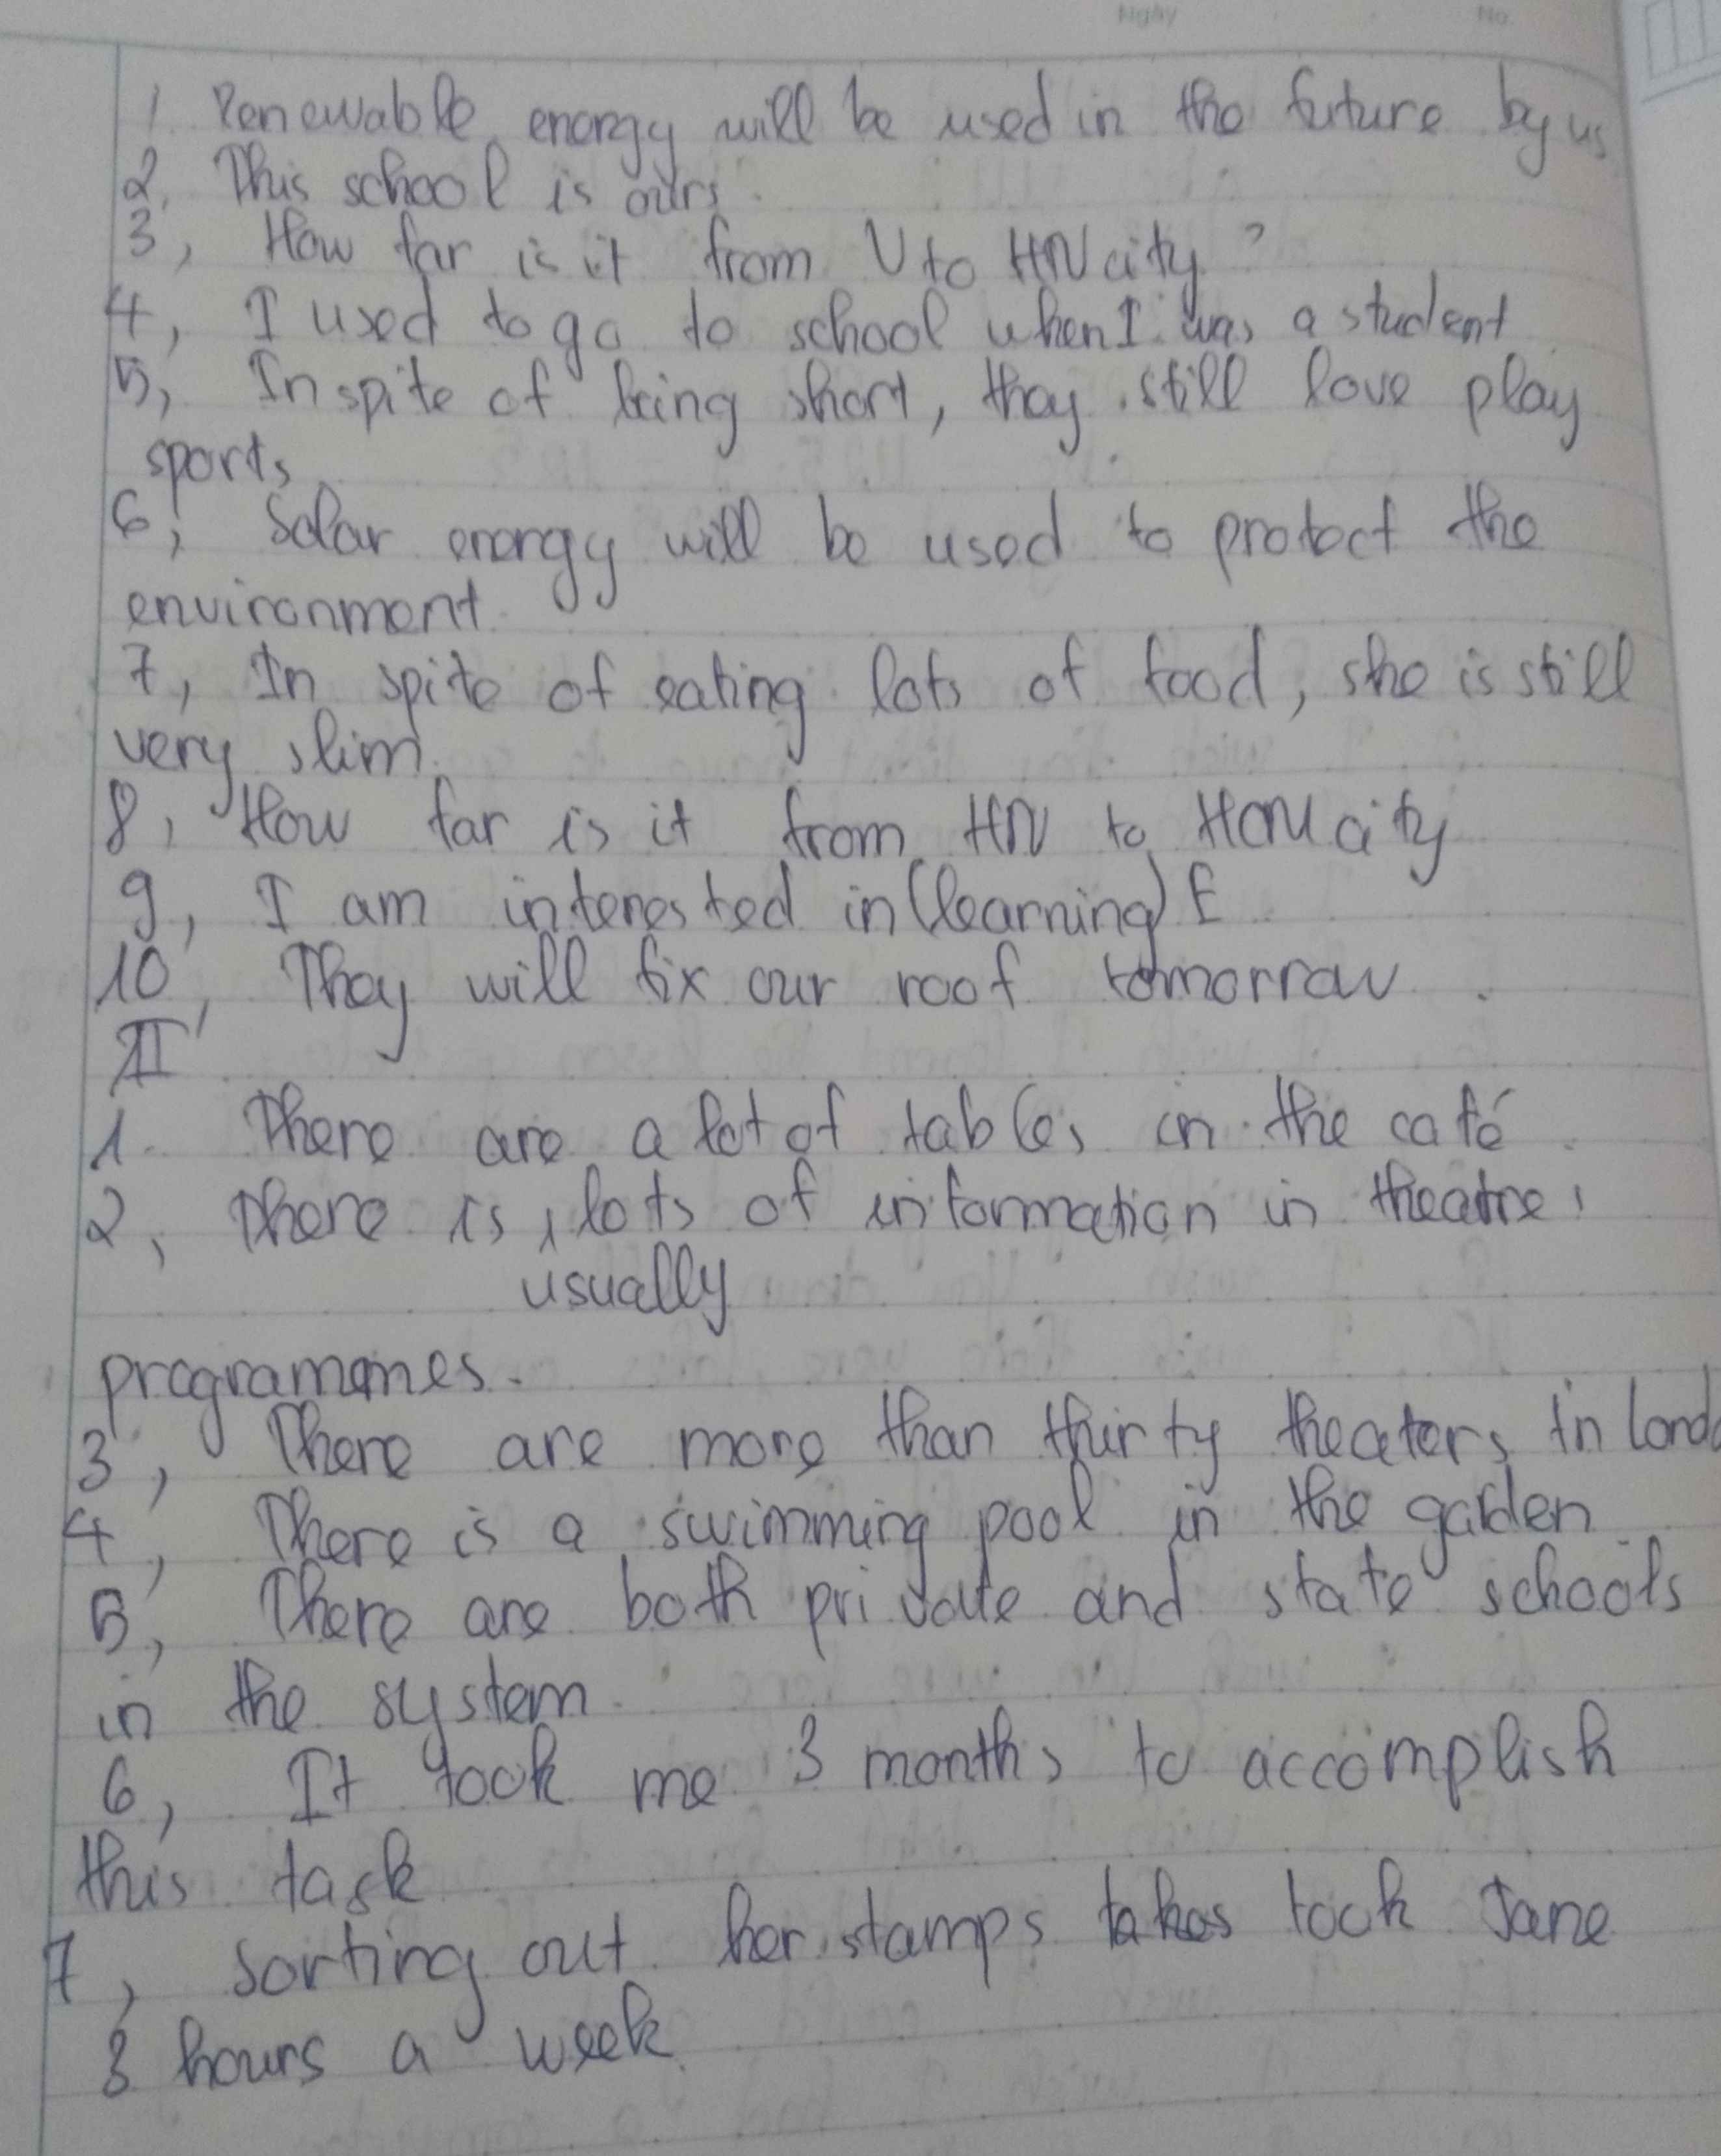 Ngày No.
1. Renewable energy will be used in the future by us
2, This school is ours.
3, How far is it from V to HN city?
4, I used to go to school when I was a student
5, In spite of being short, they still love play
sports
6, Solar energy will be used to protect the
environment.
7, In spite of eating lots of food, she is still
very slim.
8, How far is it from HN to HCM city
9, I am interested in (learning) E
10, They will fix our roof tomorrow.
II
1. There are a lot of tables in the café.
2, There is, lots of information in theatre
usually
programmes.
3, There are more than thirty theaters in
4, There is a swimming pool in the garden
5, There are both private and state schools
in the system.
6, It took me 3 months to accomplish
this task
7, Sorting out her stamps takes took Jane
3 hours a week.